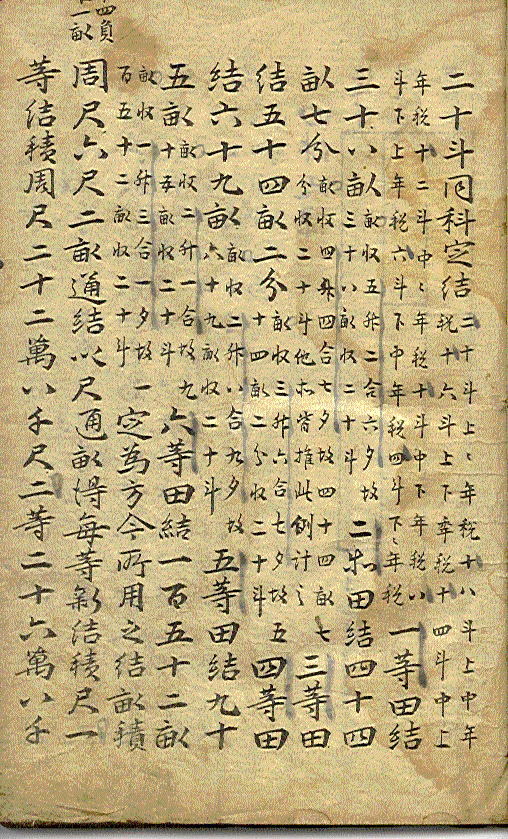 二十斗同科定結二十斗上〻年税十八斗上中年税十六斗上下年税十四斗中上
年税十二斗中〻年税十斗中下年税八斗下上年税六斗下中年税四斗下〻年税一等田結
三十八畝畝收五升二合六夕故三十八畝收二十斗二等田結四十四
畝七分畝收四升四合七夕故四十四畝七分收二十斗他亦皆推此例計之三等田
結五十四畝二分畝收三升六合七夕故五十四畝二分收二十斗四等田
結六十九畝畝收二升八合九夕故六十九畝收二十斗五等田結九十
五畝畝收二升一合故九十五畝收二十斗六等田結一百五十二畝
畝收一升三合一夕故一百五十二畝收二十斗定為方今所用之結畝積
周尺六尺二畝通結以尺通畝得每等結積尺一
等結積周尺二十二萬八千尺二等二十六萬八千
四負
一畝